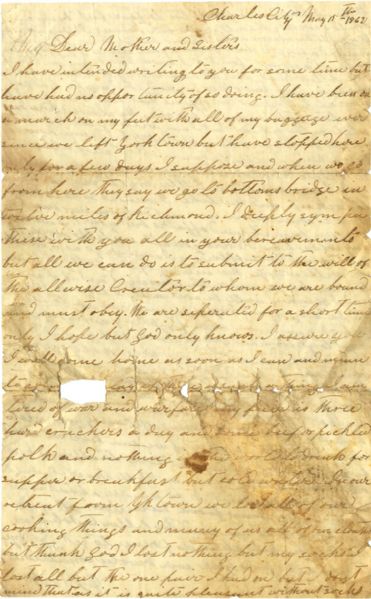 Charles City May 11th 1862
My Dear Mother and Sisters
I have intended writing to you for some time but
have had no opportunity of so doing. I have been on
a march on my feet with all of my baggage ever
since we left York town but have stopped here
only for a few days I suppose and when we go
from here they say we go to bottoms bridge in
twelve miles of Richmond. I deeply sympa
thise with you all in your bereavements
but all we can do is to submit to the will of
the allwise Creator to whom we are bound
and must obey. We are seperated for a short time
only I hope but God only knows. I assure you
I will come home as soon as I can and mean
to
tired of war and warfare my fare is three
hard crackers a day and some beef or pickled
polk and nothing drink for
supper or breakfast but cold water. In our
retreat form York town we lost all of our
cooking things and many of us all of our clothes
but thank God I lost nothing but my socks I
lost all but the one pair I had on but I dont
mind that as it is quite pleasant without socks